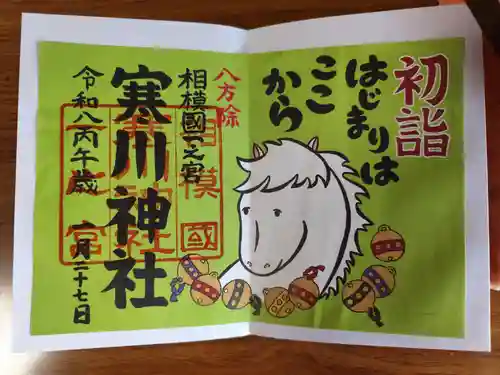 初詣
はじまりは
ここ
から
八方除
相模國一之宮
寒川神社
令和八丙午歳 一月二十七日
相模國
一之宮